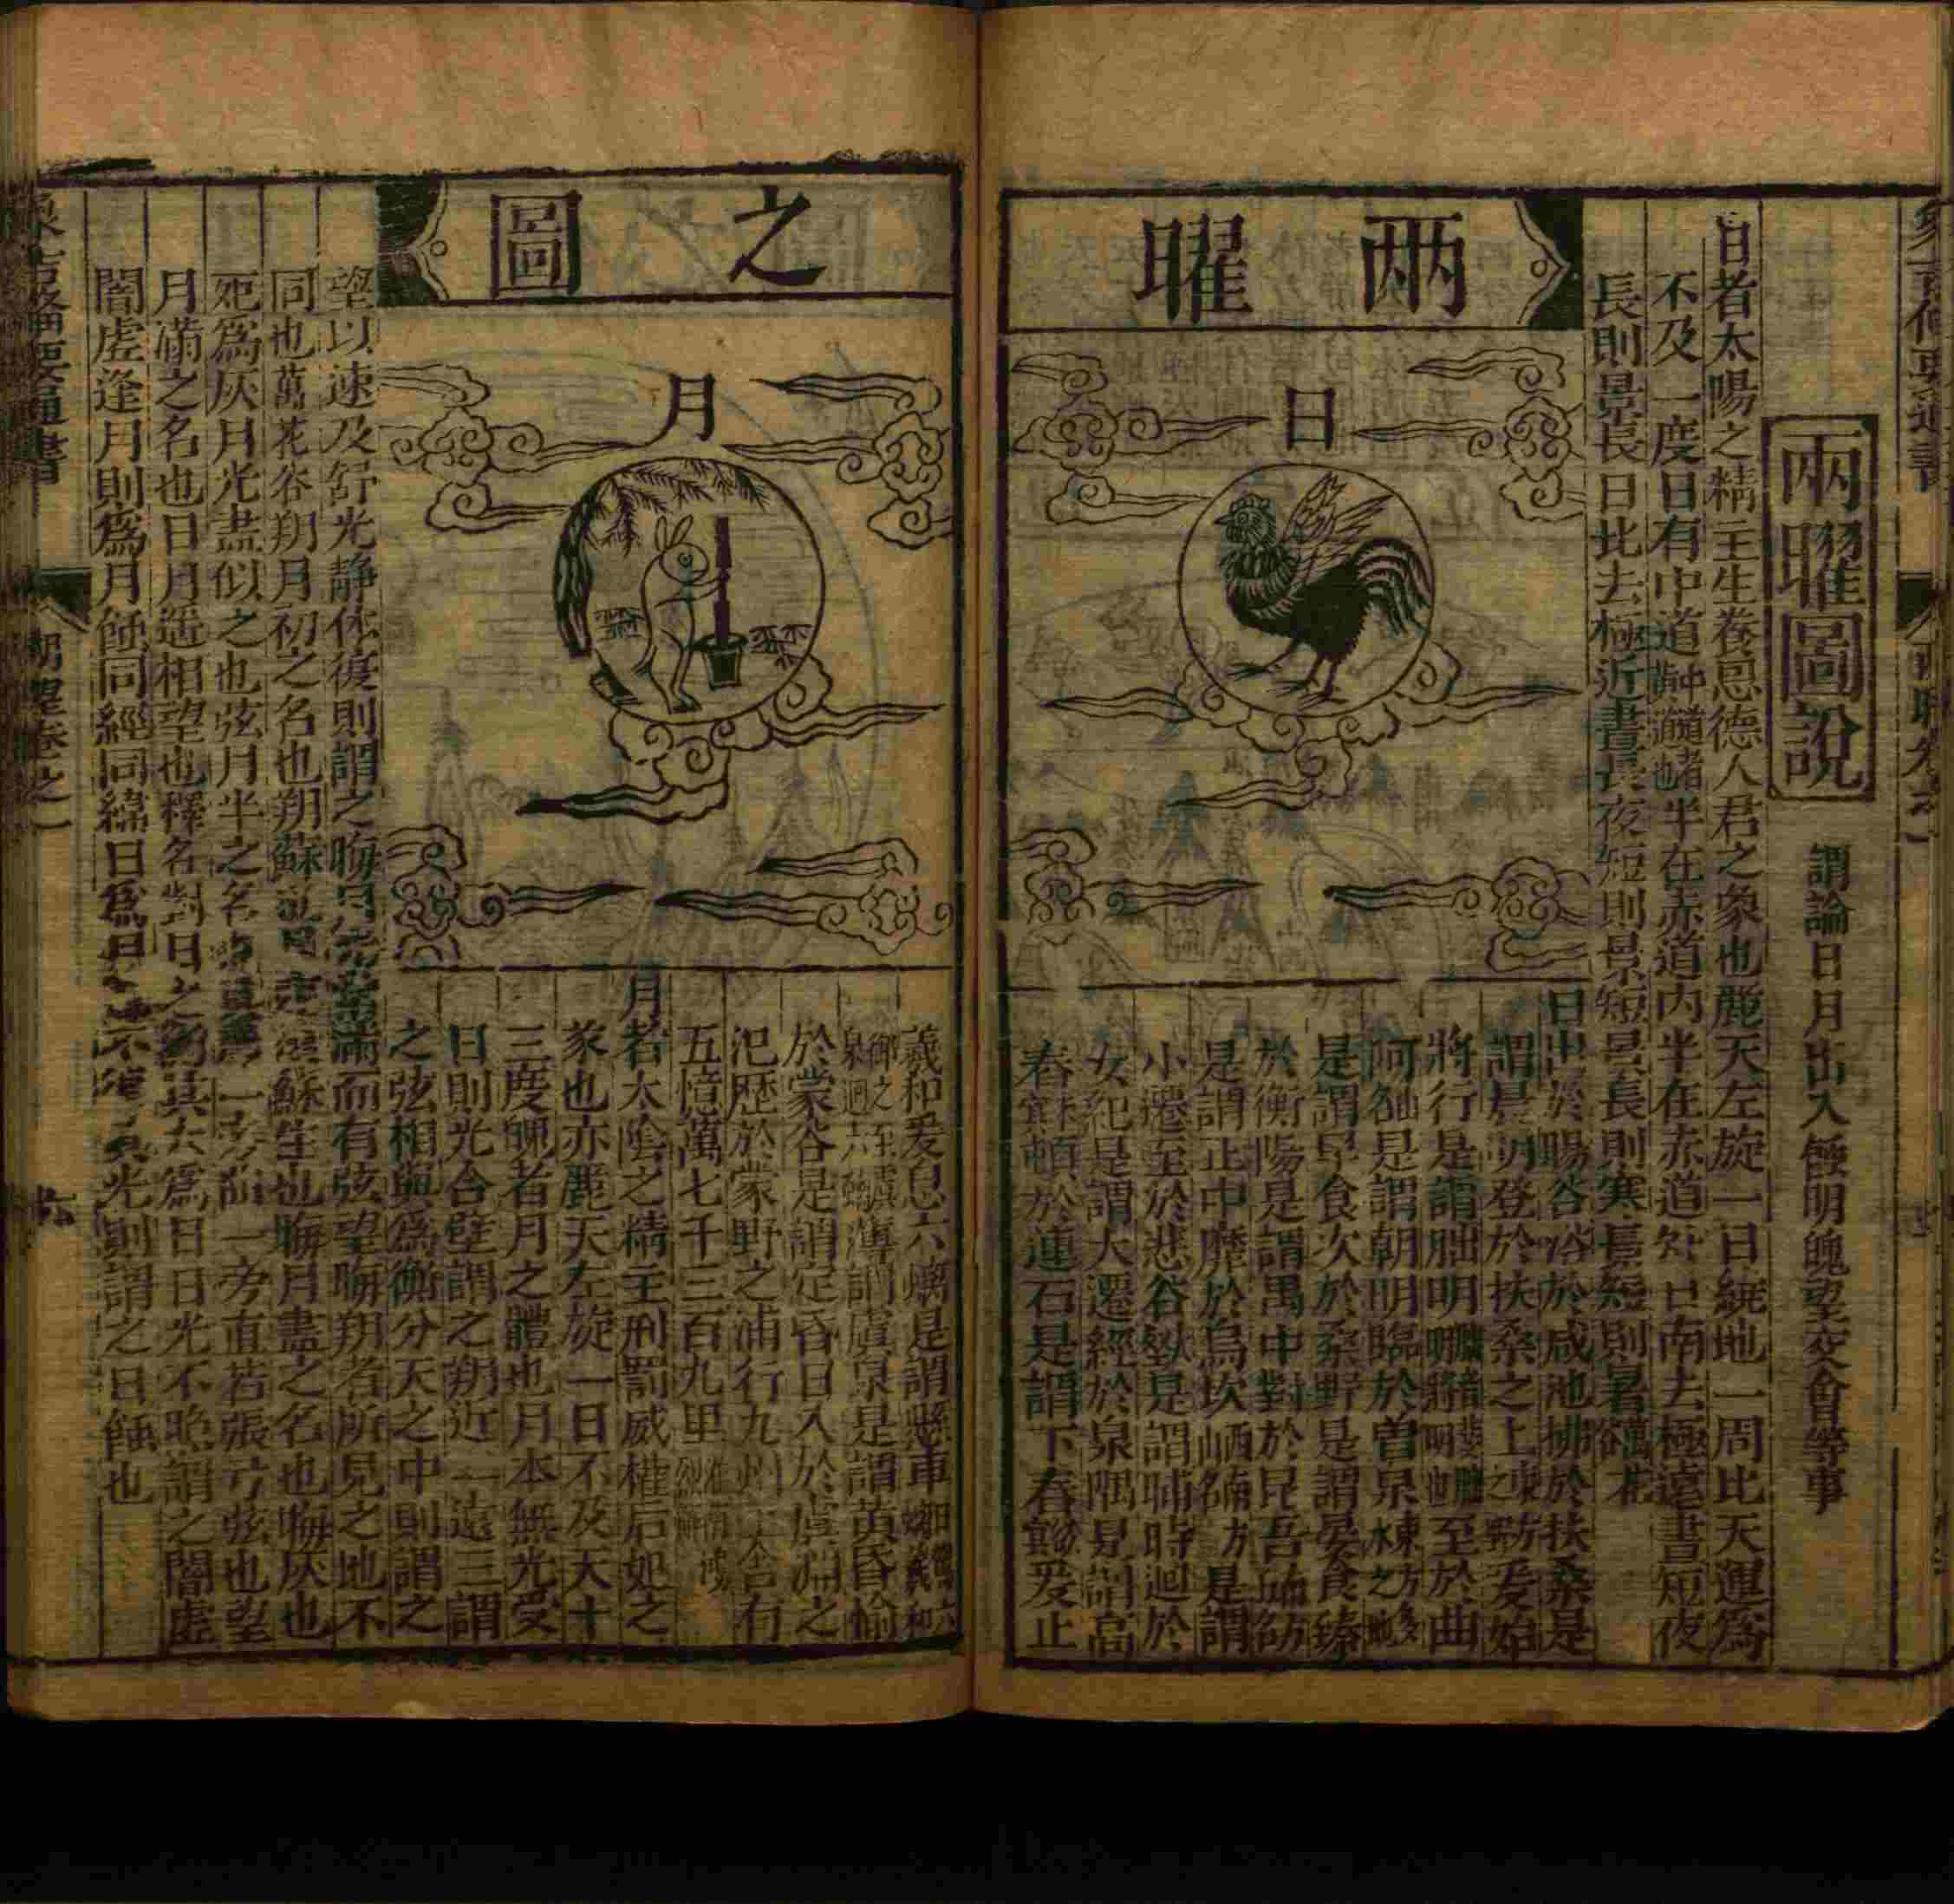 兩曜圖說
謂論日月出入蝕明魄望交會等事
日者太陽之精主生養恩德人君之象也麗天左旋一日繞地一周比天運爲
不及一度日有中道中道者黃道也半在赤道內半在赤道外日南去極遠晝短夜
長則景長日北去極近晝長夜短則景短景長則寒景短則暑萬花谷
兩曜
日
日出於暘谷浴於咸池拂於扶桑是
謂晨明登於扶桑之上東方之野爰始
將行是謂朏明朏音斐朏明將明也至於曲
阿是謂朝明臨於曾泉東方多水之地
是謂早食次於桑野是謂晏食臻
於衡陽是謂禺中對於昆吾
是謂正中靡於鳥次西南方山名是謂
小遷至於悲谷是謂晡時迴於
女紀是謂大遷經於泉隅是謂高
舂頓於連石是謂下舂爰止
之圖
月
羲和爰息六螭是謂懸車
薄訓虞泉是謂黃昏淪
於蒙谷是謂定昏日入於虞淵之
汜歷於蒙野之浦行九州七舍有
五億萬七千三百九里淮南鴻烈解
月者太陰之精主刑罰威權后妃之
象也亦麗天左旋一日不及天十
三度魄者月之體也月本無光受
日則光合壁謂之朔近一遠三謂
之弦相與爲衡分天之中則謂之
望以速及舒光靜体復則謂之晦滿而有弦望晦朔者所見之地不
同也萬花谷朔月初之名也朔蘇也蘇生也晦月盡之名也晦灰也
死爲灰月光盡似之也弦月半之名一旁直若張弓弦也望
月滿之名也日月遥相望也釋名對日之其大爲日日光不照謂之闇虛
闇虛逢月則爲月蝕同經同緯日爲光則謂之日蝕也
六